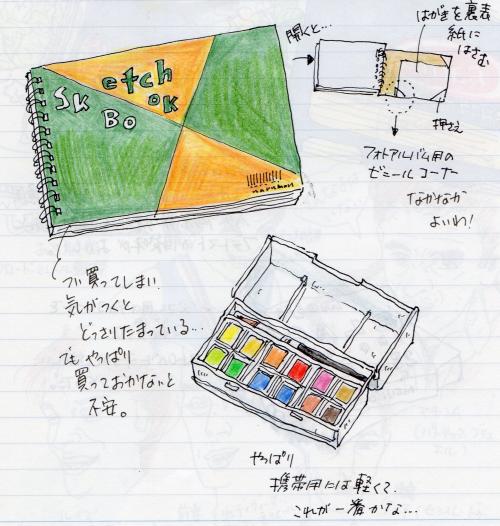 Sketch
BoOK
maruman
開くと…
はがきを裏表
紙に
はさむ
押さえ
フォトアルバム用の
ビニールコーナー
なかなか
よいわ!
つい買ってしまい、
気がつくと
どっさりたまっている…
でもやっぱり
買っておかないと
不安。
やっぱり
携帯用には軽くて、
これが一番かな…